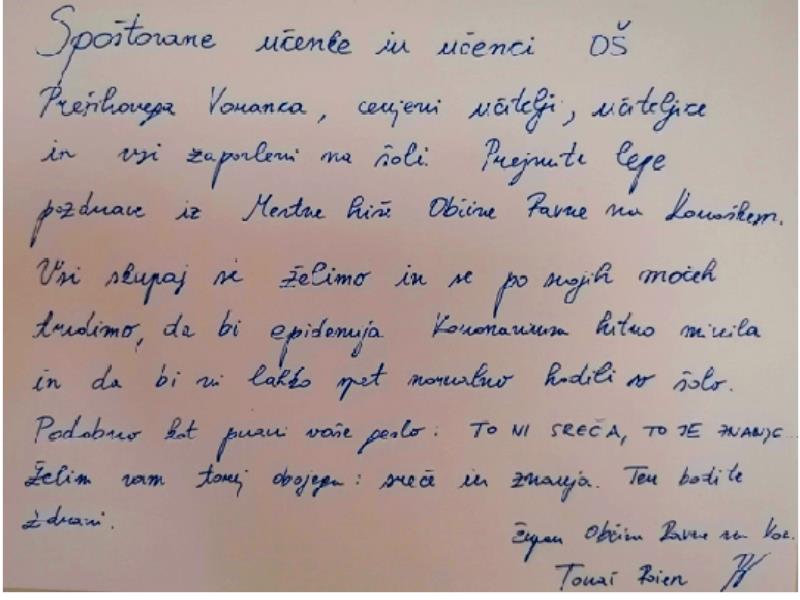 Spoštovane učenke in učenci OŠ
Prežihovega Voranca, cenjeni učitelji, učiteljice
in vsi zaposleni na šoli. Prejmite lepe
pozdrave iz Mestne hiše Občine Ravne na Koroškem.
Vsi skupaj si želimo in se po svojih močeh
trudimo, da bi epidemija Koronavirusa hitro minila
in da bi vi lahko spet normalno hodili v šolo.
Podobno kot pravi vaše geslo: TO NI SREČA, TO JE ZNANJE...
Želim vam torej obojega: sreče in znanja. Ter bodite
zdravi.
Župan Občine Ravne na Kor.
Tomaž Rožen